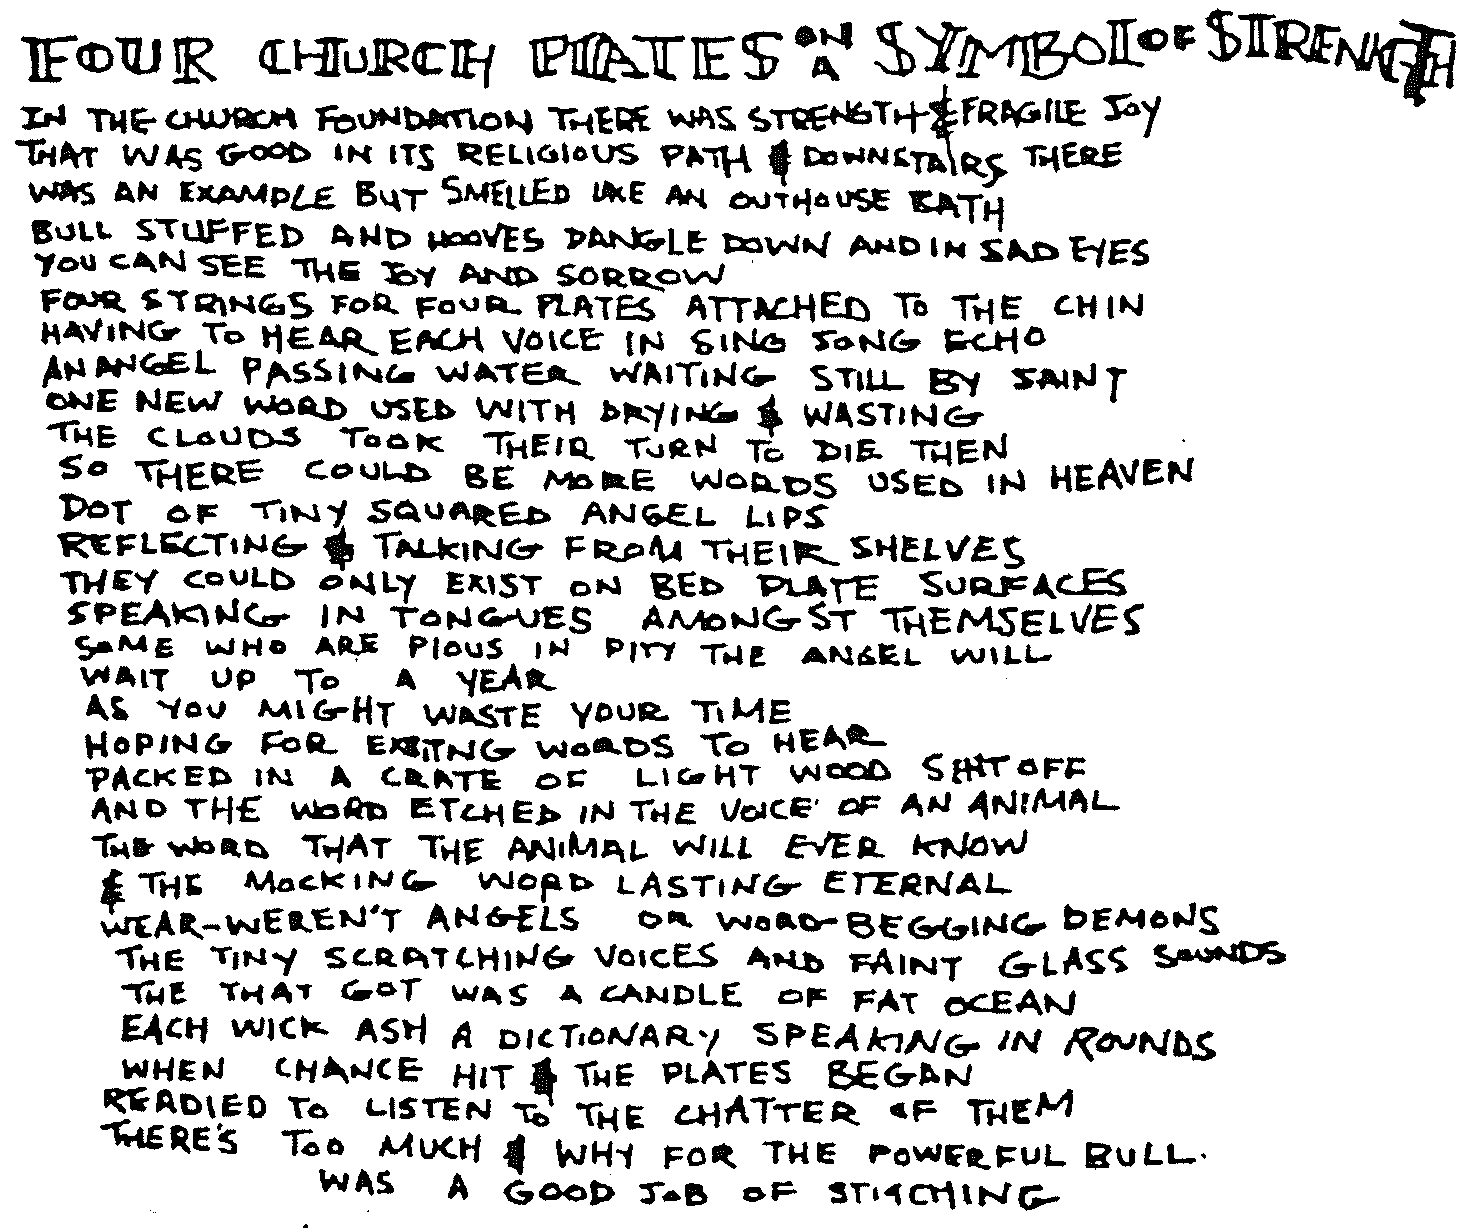 FOUR CHURCH PLATES ON A SYMBOL OF STRENGTH
IN THE CHURCH FOUNDATION THERE WAS STRENGTH & FRAGILE JOY
THAT WAS GOOD IN ITS RELIGIOUS PATH & DOWNSTAIRS THERE
WAS AN EXAMPLE BUT SMELLED LIKE AN OUTHOUSE BATH
BULL STUFFED AND HOOVES DANGLE DOWN AND IN SAD EYES
YOU CAN SEE THE JOY AND SORROW
FOUR STRINGS FOR FOUR PLATES ATTACHED TO THE CHIN
HAVING TO HEAR EACH VOICE IN SING SONG ECHO
AN ANGEL PASSING WATER WAITING STILL BY SAINT
ONE NEW WORD USED WITH DRYING & WASTING
THE CLOUDS TOOK THEIR TURN TO DIE THEN
SO THERE COULD BE MORE WORDS USED IN HEAVEN
DOT OF TINY SQUARED ANGEL LIPS
REFLECTING & TALKING FROM THEIR SHELVES
THEY COULD ONLY EXIST ON BED PLATE SURFACES
SPEAKING IN TONGUES AMONGST THEMSELVES
SOME WHO ARE PIOUS IN PITY THE ANGEL WILL
WAIT UP TO A YEAR
AS YOU MIGHT WASTE YOUR TIME
HOPING FOR WORDS TO HEAR
PACKED IN A CRATE OF LIGHT WOOD SHUT OFF
AND THE WORD ETCHED IN THE VOICE OF AN ANIMAL
THE WORD THAT THE ANIMAL WILL EVER KNOW
& THE MOCKING WORD LASTING ETERNAL
WEAR-WEREN'T ANGELS OR WORD-BEGGING DEMONS
THE TINY SCRATCHING VOICES AND FAINT GLASS SOUNDS
THE THAT GOT WAS A CANDLE OF FAT OCEAN
EACH WICK ASH A DICTIONARY SPEAKING IN ROUNDS
WHEN CHANCE HIT & THE PLATES BEGAN
READIED TO LISTEN TO THE CHATTER OF THEM
THERE'S TOO MUCH & WHY FOR THE POWERFUL BULL.
WAS A GOOD JOB OF STITCHING